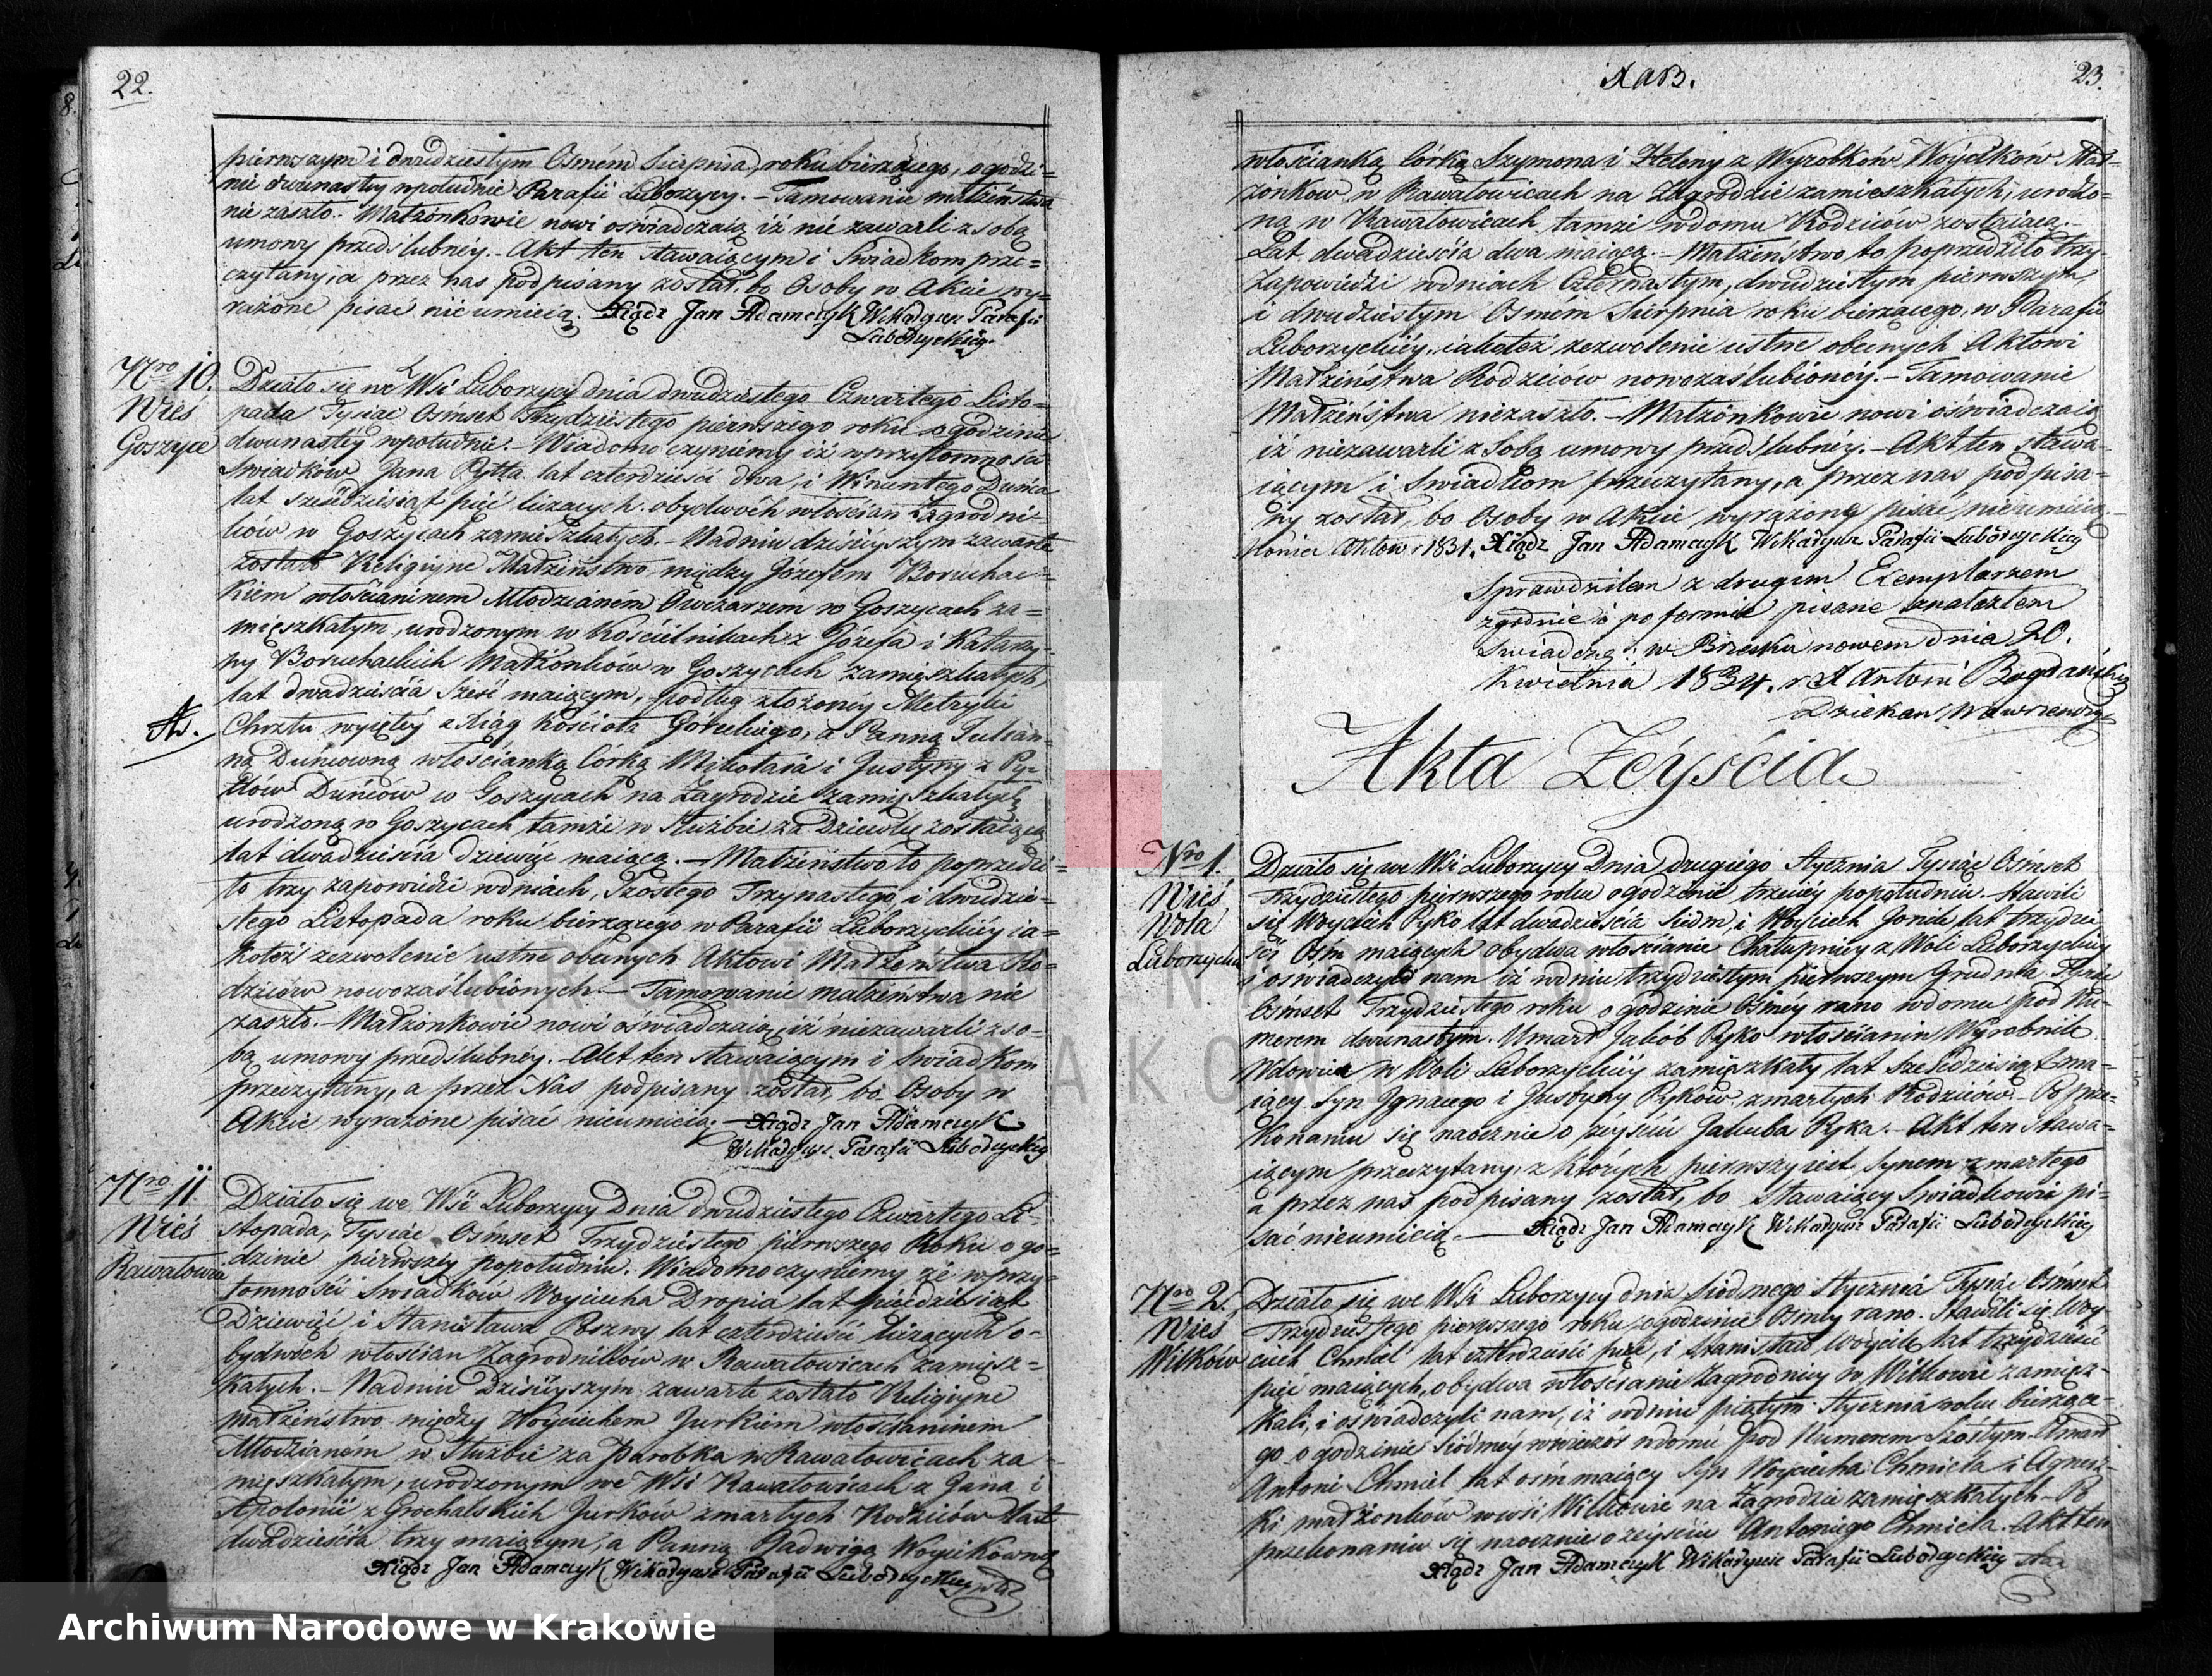 22.
pierwszym i dwudziestym Osmém Sierpnia, roku bieżącego, o godzi=
nie dwunastey wpołudnie Parafii Luborzycy. – Tamowanie małżeństwa
nie zaszło. Małżonkowie nowi oświadczaią iż nie zawarli z sobą
umowy przedślubnéy. – Akt ten stawaiącym i Swiadkom prze=
czytany, a przez nas podpisany został, bo Osoby w Akcie wy=
rażone pisać nieumieią. Xiądz Jan Adamczyk Wikaryusz Parafii
Luborzyckiéy.
Nro 10.
Wieś
Goszyce
Działo się we Wsi Luborzycy dnia dwudziestego Czwartego Listo=
pada Tysiąc Osmset Trzydziestego pierwszego roku o godzinie
dwunastéy wpołudnie. – Wiadomo czyniemy iż wprzytomności
Swiadków Jana Pytla lat czterdzieści dwa, i Wincentego Dunia
lat sześdziesiąt pięć liczących obydwóch włościan Zagrodni=
ków w Goszycach zamieszkałych. – Wadniu dzisieyszym zawarte
zostało Religiyne Małżeństwo między Józefem Boruchac=
kiem włościaninem Młodzianém Owczarzem w Goszycach za=
mięszkałym, urodzonym w Kościelnikach z Józefa i Katarzy=
ny Boruchackich Małżonków w Goszycach zamięszkałych
lat dwadzieścia sześć maiącym, podług złożonéy Metryki
Chrztu wyiętéy z Xiąg Kościoła Góreckiego, a Panną Julian=
ną Duniowną włościanką Córką Mikołaia i Justyny z Py=
tlów Duniów w Goszycach na Zagrodzie zamięszkałych
urodzoną w Goszycach, tamże w Służbie za Dziewkę zostaiącą
lat dwadzieścia dziewięć maiącą. – Małżeństwo to poprzedzi=
ło trzy zapowiedzi wdniach, Szostego Trzynastego i dwudzie=
stego Listopada roku bieżącego w Parafii Luborzyckiéy ia=
kotéż zezwolenie ustne obecnych Aktowi Małżeństwa Ro=
dziców nowozaślubionych. – Tamowanie małżeństwa nie
zaszło. – Małżonkowie nowi oświadczaią, iż niezawarli z so=
bą umowy przedślubnéy. – Akt ten stawaiącym i Swiadkom
przeczytany, a przez Nas podpisany został, bo Osoby w
Akcie wyrażone pisać nieumieią. – Xiądz Jan Adamczyk
Wikaryusz Parafii Luborzyckiéy
Nro 11.
Wieś
Rawałowice
Działo się we Wsi Luborzycy Dnia dwudziestego Czwartego Li=
stopada, Tysiąc Osmset Trzydziestego pierwszego Roku o go=
dzinie pierwszéy popołudniu. Wiadomo czyniemy że wprzy=
tomności Swiadków Woyciecha Dropia lat pięćdziesiąt
Dziewięć i Stanisława Rozwy lat czterdzieści liczących o=
bydwóch włościan Zagrodników w Rawałowicach zamięsz=
kałych. – Wadniu Dzisieyszym zawarte zostało Religiyne
małżeństwo między Woyciechem Jurkiem włościaninem
Młodzianém w Służbie za Parobka w Rawałowicach za=
mięszkałym, urodzonym we Wsi Rawałowicach z Jana i
Apolonii z Grochalskich Jurków zmarłych Rodziców lat
dwadzieścia trzy maiącym, a Panną Jadwigą Woycikówną
Xiądz Jan Adamczyk Wikaryusz Parafii Luborzyckiéy
23.
włościanką Córką Szymona i Heleny z Wyrobków Wóycików Mał=
żonków w Rawałowicach na Zagrodzie zamieszkałych, urodzo=
ną w Rawałowicach tamże wdomu Rodziców zostaiącą. –
Lat dwadzieścia dwa maiącą. – Małżeństwo to poprzedziło trzy
Zapowiedzi wdniach Czternastym, dwudziestym pierwszym
i dwudziestym Osmém Sierpnia roku bieżącego, w Parafii
Luborzyckiéy, iakotéż zezwolenie ustne obecnych Aktowi
Małżeństwa Rodziców nowozaślubionéy. – Tamowanie
Małżeństwa niezaszło. – Małżonkowie nowi oświadczaią
iż niezawarli z Sobą umowy przedślubnéy. – Akt ten stawa=
iącym i Swiadkom przeczytany, a przez nas podpisa=
ny został, bo Osoby w Akcie wyrażone pisać nieumieią. –
Koniec Aktow r 1831. Xiądz Jan Adamczyk Wikaryusz Parafii Luborzyckiéy
Sprawdziłem z drugim Exemplarzem
zgodnie i po formie pisane znalazłem
Swiadczę w Brzesku nowem dnia 20.
Kwietnia 1834. r X Antoni Bogdański
Dziekan
Akta Zéyścia
Nro 1.
Wieś
Wola
Luborzycka
Działo się we Wsi Luborzycy Dnia drugiego Stycznia Tysiąc Osmset
Trzydziestego pierwszego roku o godzinie trzeciéy popołudniu. Stawili
się Woyciech Pyko lat dwadzieścia siedm, i Woyciech Gonik lat trzydzie=
ści Osm maiących obydwa włościanie Chałupnicy z Woli Luborzyckiéy
i oświadczyli nam iż wdniu trzydziestym pierwszym Grudnia Tysiąc
Osmset Trzydziestego roku o godzinie Osméy rano wdomu pod Nu=
merem dwunastym. Umarł Jakób Pyko włościanin Wyrobnik
Wdowiec w Woli Luborzyckiéy zamięszkały lat sześdziesiąt ma=
iący Syn Ignacego i Justyny Pyków zmarłych Rodziców. – Po prze=
konaniu się naocznie o zeyściu Jakuba Pyka. – Akt ten Stawa=
iącym przeczytany, z których pierwszy iest Synem zmarłego
a przez nas podpisany został, bo Stawaiący Swiadkowie pi=
sać nieumieią. – Xiądz Jan Adamczyk Wikaryusz Parafii Luborzyckiéy
Nro 2.
Wieś
Wilków
Działo się we Wsi Luborzycy dnia siódmego Stycznia Tysiąc Osmset
Trzydziestego pierwszego roku, o godzinie Osméy rano. Stawili się Woy=
ciech Chmiel lat czterdzieści pięć, i Stanisław Woycik lat trzydzieści
pięć maiących, obydwa włościanie Zagrodnicy w Wilkowie zamięsz=
kali, i oświadczyli nam, iż wdniu piątym Stycznia roku bieżące=
go o godzinie siódméy wwieczor wdomu pod Numerem Szóstym Umarł
Antoni Chmiel lat osm maiący Syn Woyciecha Chmiela i Agniesz=
ki małżonków wewsi Wilkowie na Zagrodzie zamięszkałych. – Po
przekonaniu się naocznie o zeyściu Antoniego Chmiela. Akt ten
Xiądz Jan Adamczyk Wikaryusz Parafii Luborzyckiéy
ARCHIWUM NARODOWE
W KRAKOWIE
Archiwum Narodowe w Krakowie